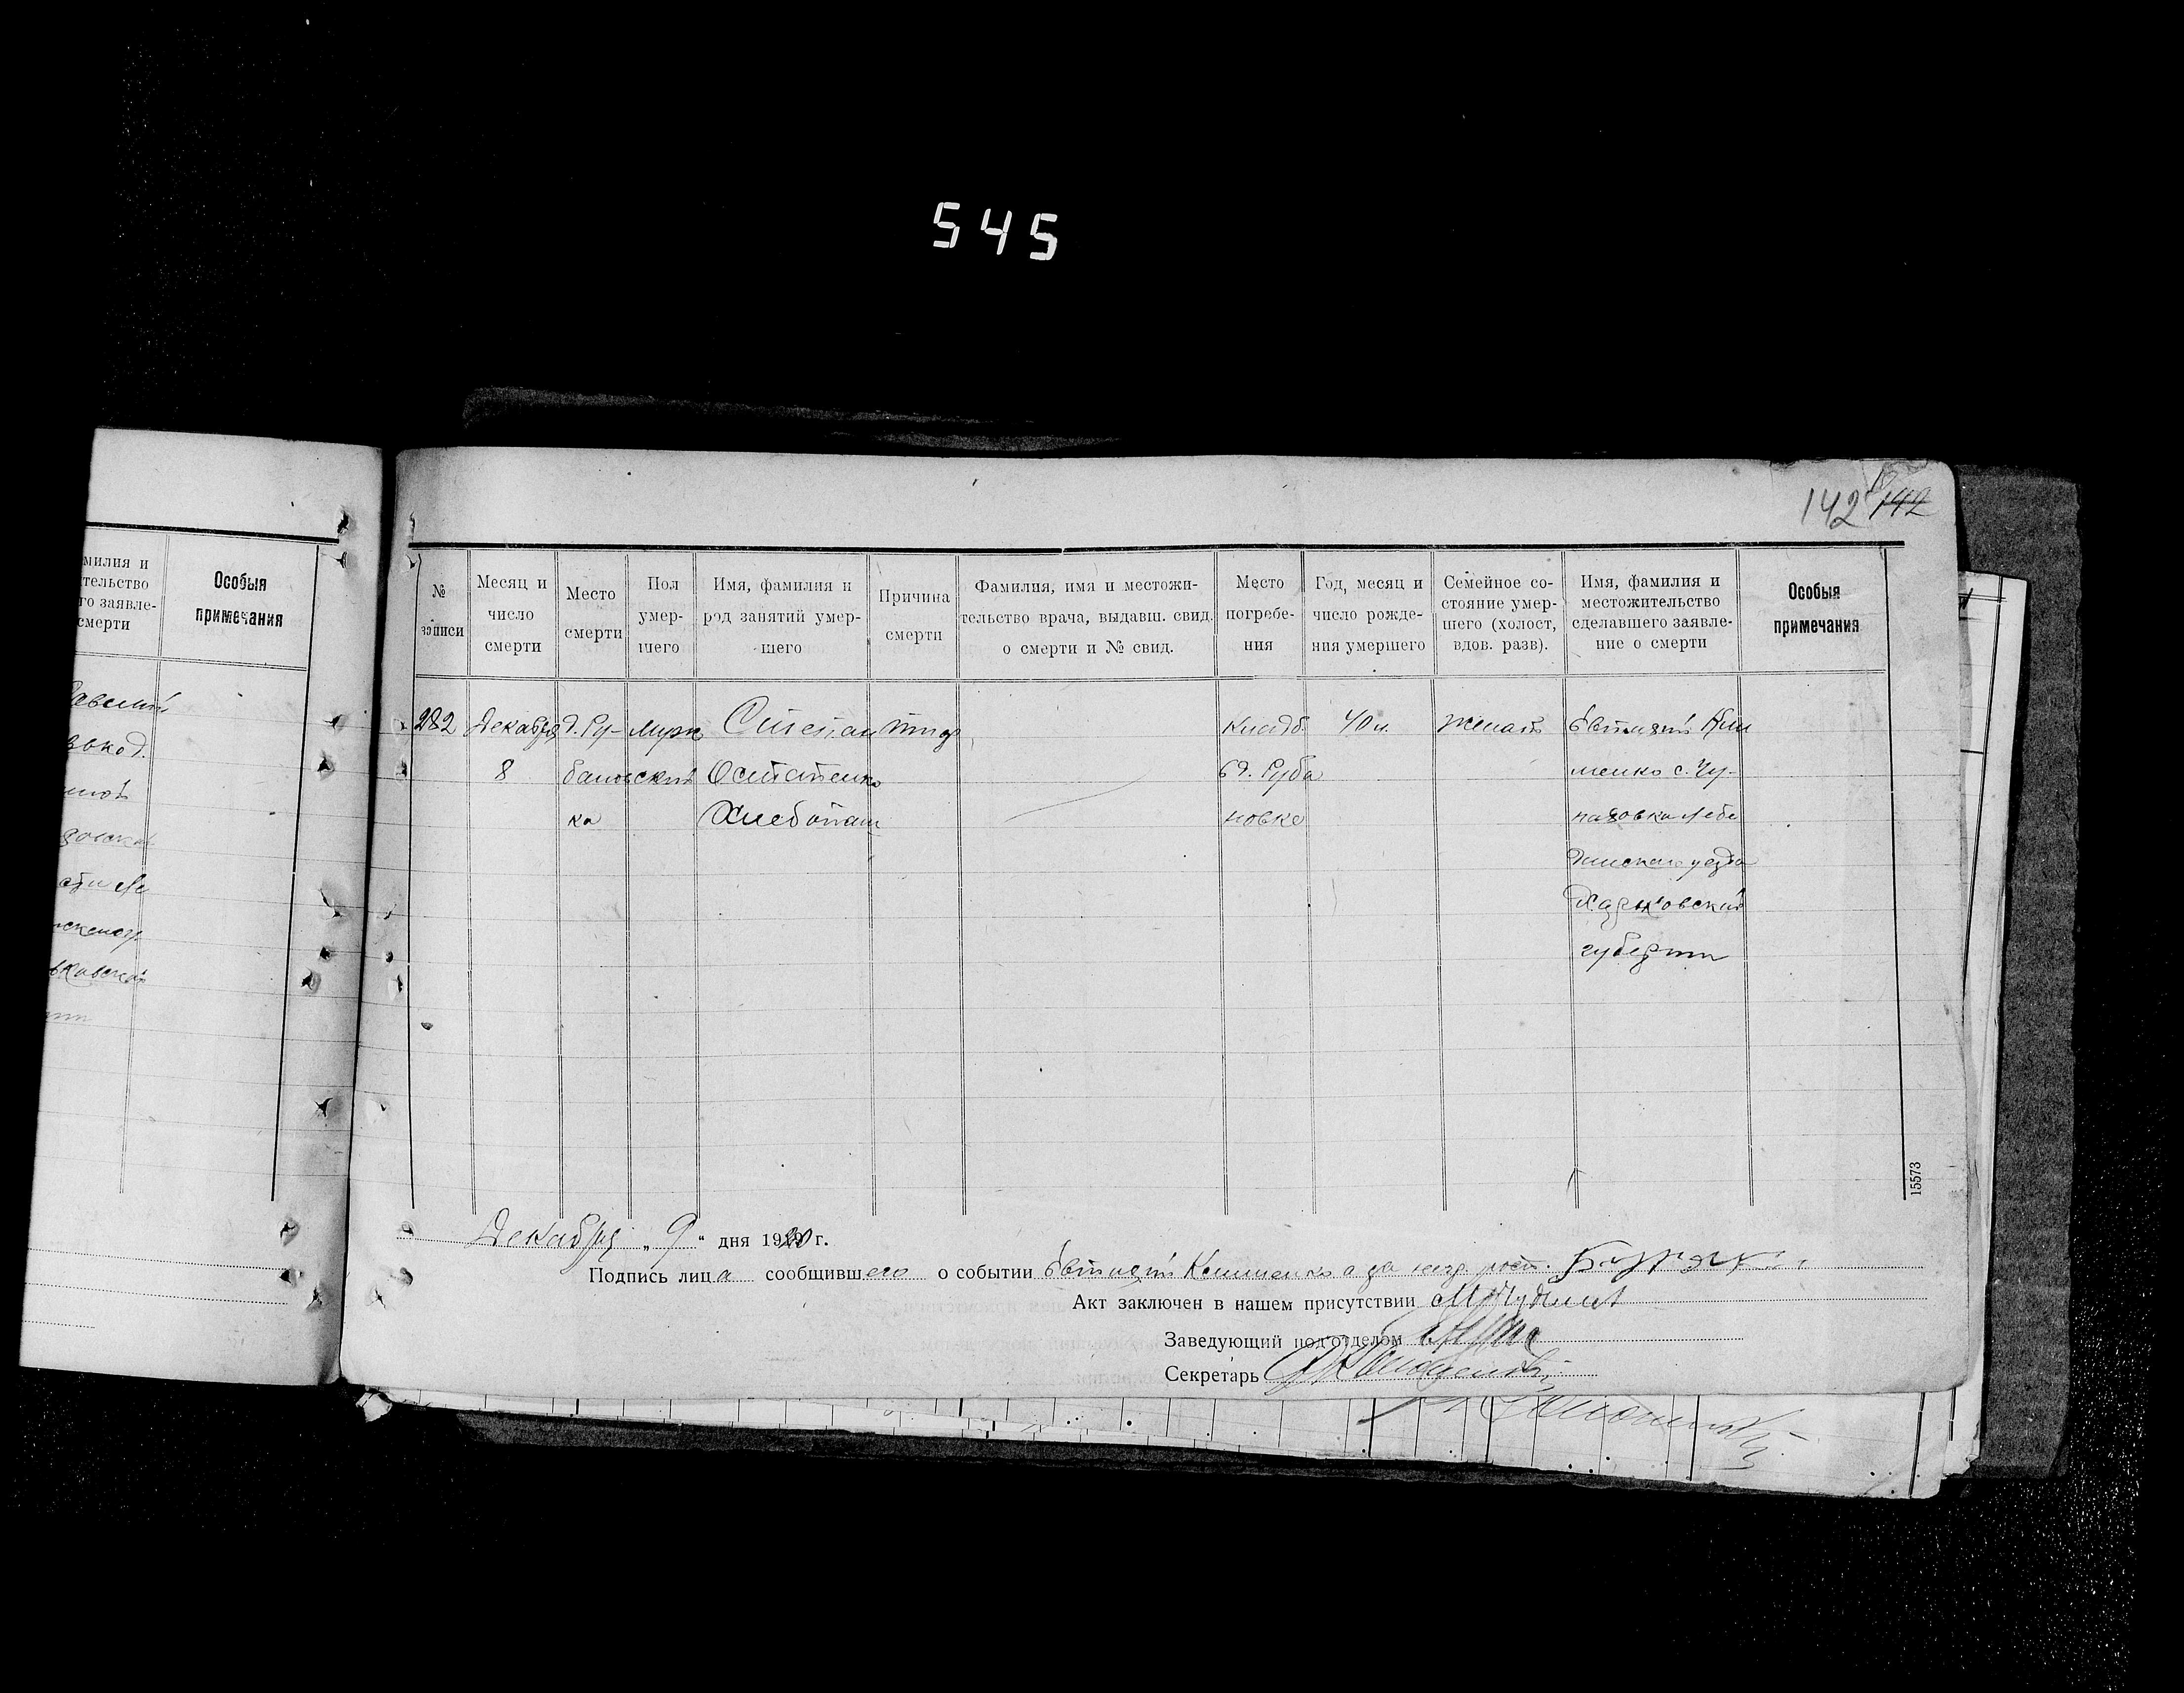 545
142 142
милия и
тельство
го заявле-
смерти
Особыя
примечания
№
записи
Месяц и
число
смерти
Место
смерти
Пол
умер-
шего
Имя, фамилия и
род занятий умер-
шего
Причина
смерти
Фамилия, имя и местожи-
тельство врача, выдавш. свид.
о смерти и № свид.
Место
погребе-
ния
Год, месяц и
число рожде-
ния умершего
Семейное со-
стояние умер-
шего (холост,
вдов. разв).
Имя, фамилия и
местожительство
сделавшего заявле-
ние о смерти
Особыя
примечания
282
Декабря
8
д. Ру-
бановка
ка
мужс
ской
Степан
Остапенко
Хлебопаш
тиф
Кладб.
в д. Руба
новке
40 л.
женат
Евтихий Кли
менко с. Чу-
паховка Лебе
динскаго уезда
Харьковской
губернии
15573
Декабря „ 9 “ дня 1920 г.
Подпись лица сообщившего о событии Евтихий Клименко а за негр. росп.
Акт заключен в нашем присутствии
Заведующий под'отделом
Секретарь